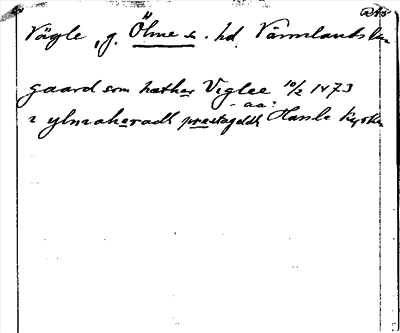 Vägle, g. Ölme s. o. hd, Värmlands län
gaard som hæther Viglee 10/2 1473
-aa:
i ylmaheradh præstageldh Hassle kyrka